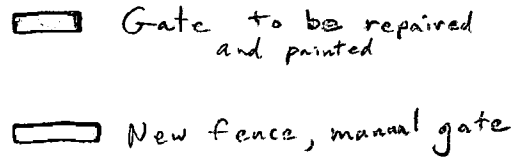 Gate to be repaired
and painted
New fence, manual gate